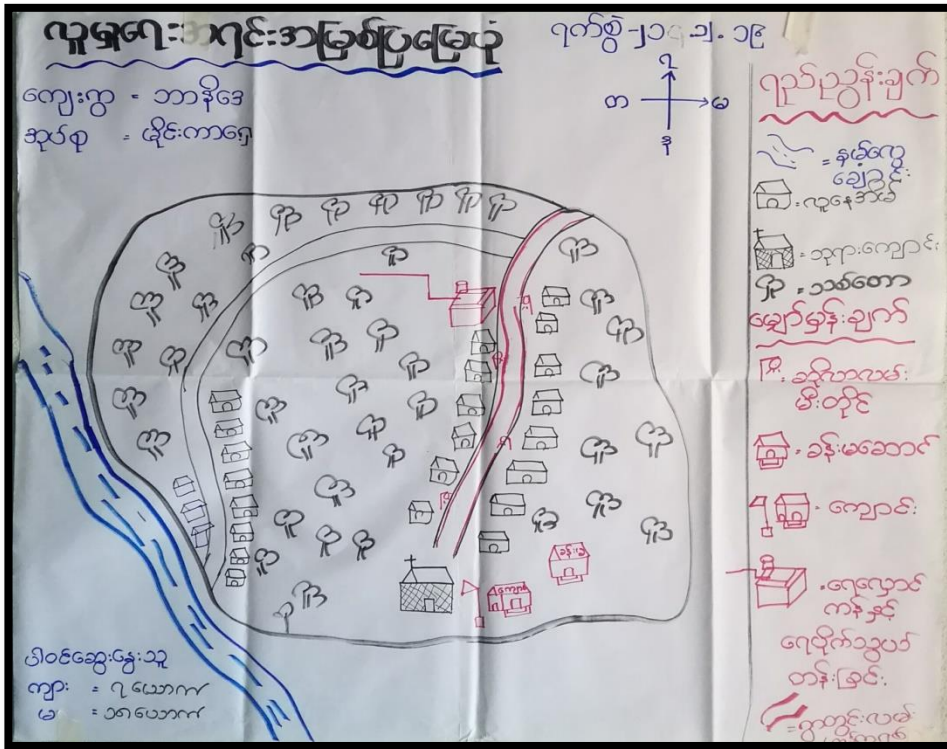 လူမှုရေးအရင်းအမြစ်ပြမြေပုံ
ရက်စွဲ - ၂၁ ၊ ၁၂ . ၁၉
ကျေးရွာ = ဘာနိဒေ
အုပ်စု =
မြ
တ
မ
န
ရည်ညွှန်းချက်
= နမ့်ကွေ့ ချောင်း
= လူနေအိမ်
= ဘုရားကျောင်း
= သစ်တော
မျှော်မှန်းချက်
= ဆိုလာလမ်း
မီးတိုင်
= ခန်းမဆောင်
= ကျောင်း
= ရေလှောင်
ကန်နှင့်
ရေပိုက်သွယ်
တန်းခြင်း
= ရွာတွင်းလမ်း
ခန်းမ
ကျောင်း
ပါဝင်ဆွေးနွေးသူ
ကျား = ၇ ယောက်
မ = ၁၈ ယောက်